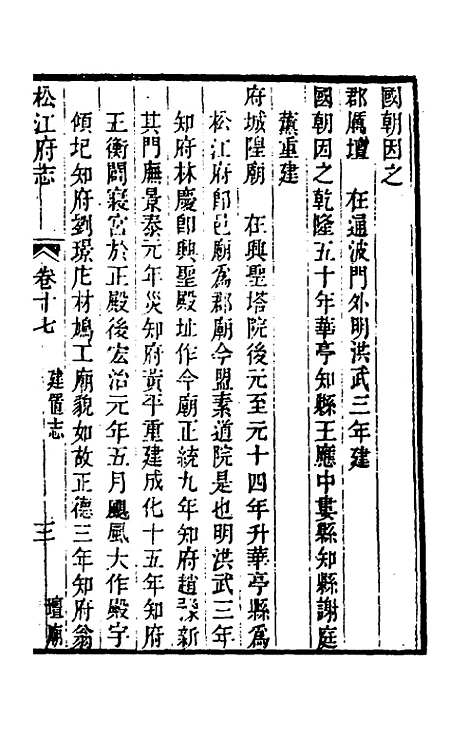 國朝因之
郡厲壇　在通波門外明洪武三年建
國朝因之乾隆五十年華亭知縣王應中婁縣知縣謝庭
薰重建
府城隍廟　在興聖塔院後元至元十四年升華亭縣爲
松江府卽邑廟爲郡廟今盟素道院是也明洪武三年
知府林慶卽興聖殿址作今廟正統九年知府趙豫新
其門廡景泰元年災知府黃平重建成化十五年知府
王衡闢寢宮於正殿後宏治元年五月颶風大作殿宇
傾圮知府劉璟庀材鳩工廟貌如故正德三年知府翁
松江府志　卷十七　建置志　三　壇廟